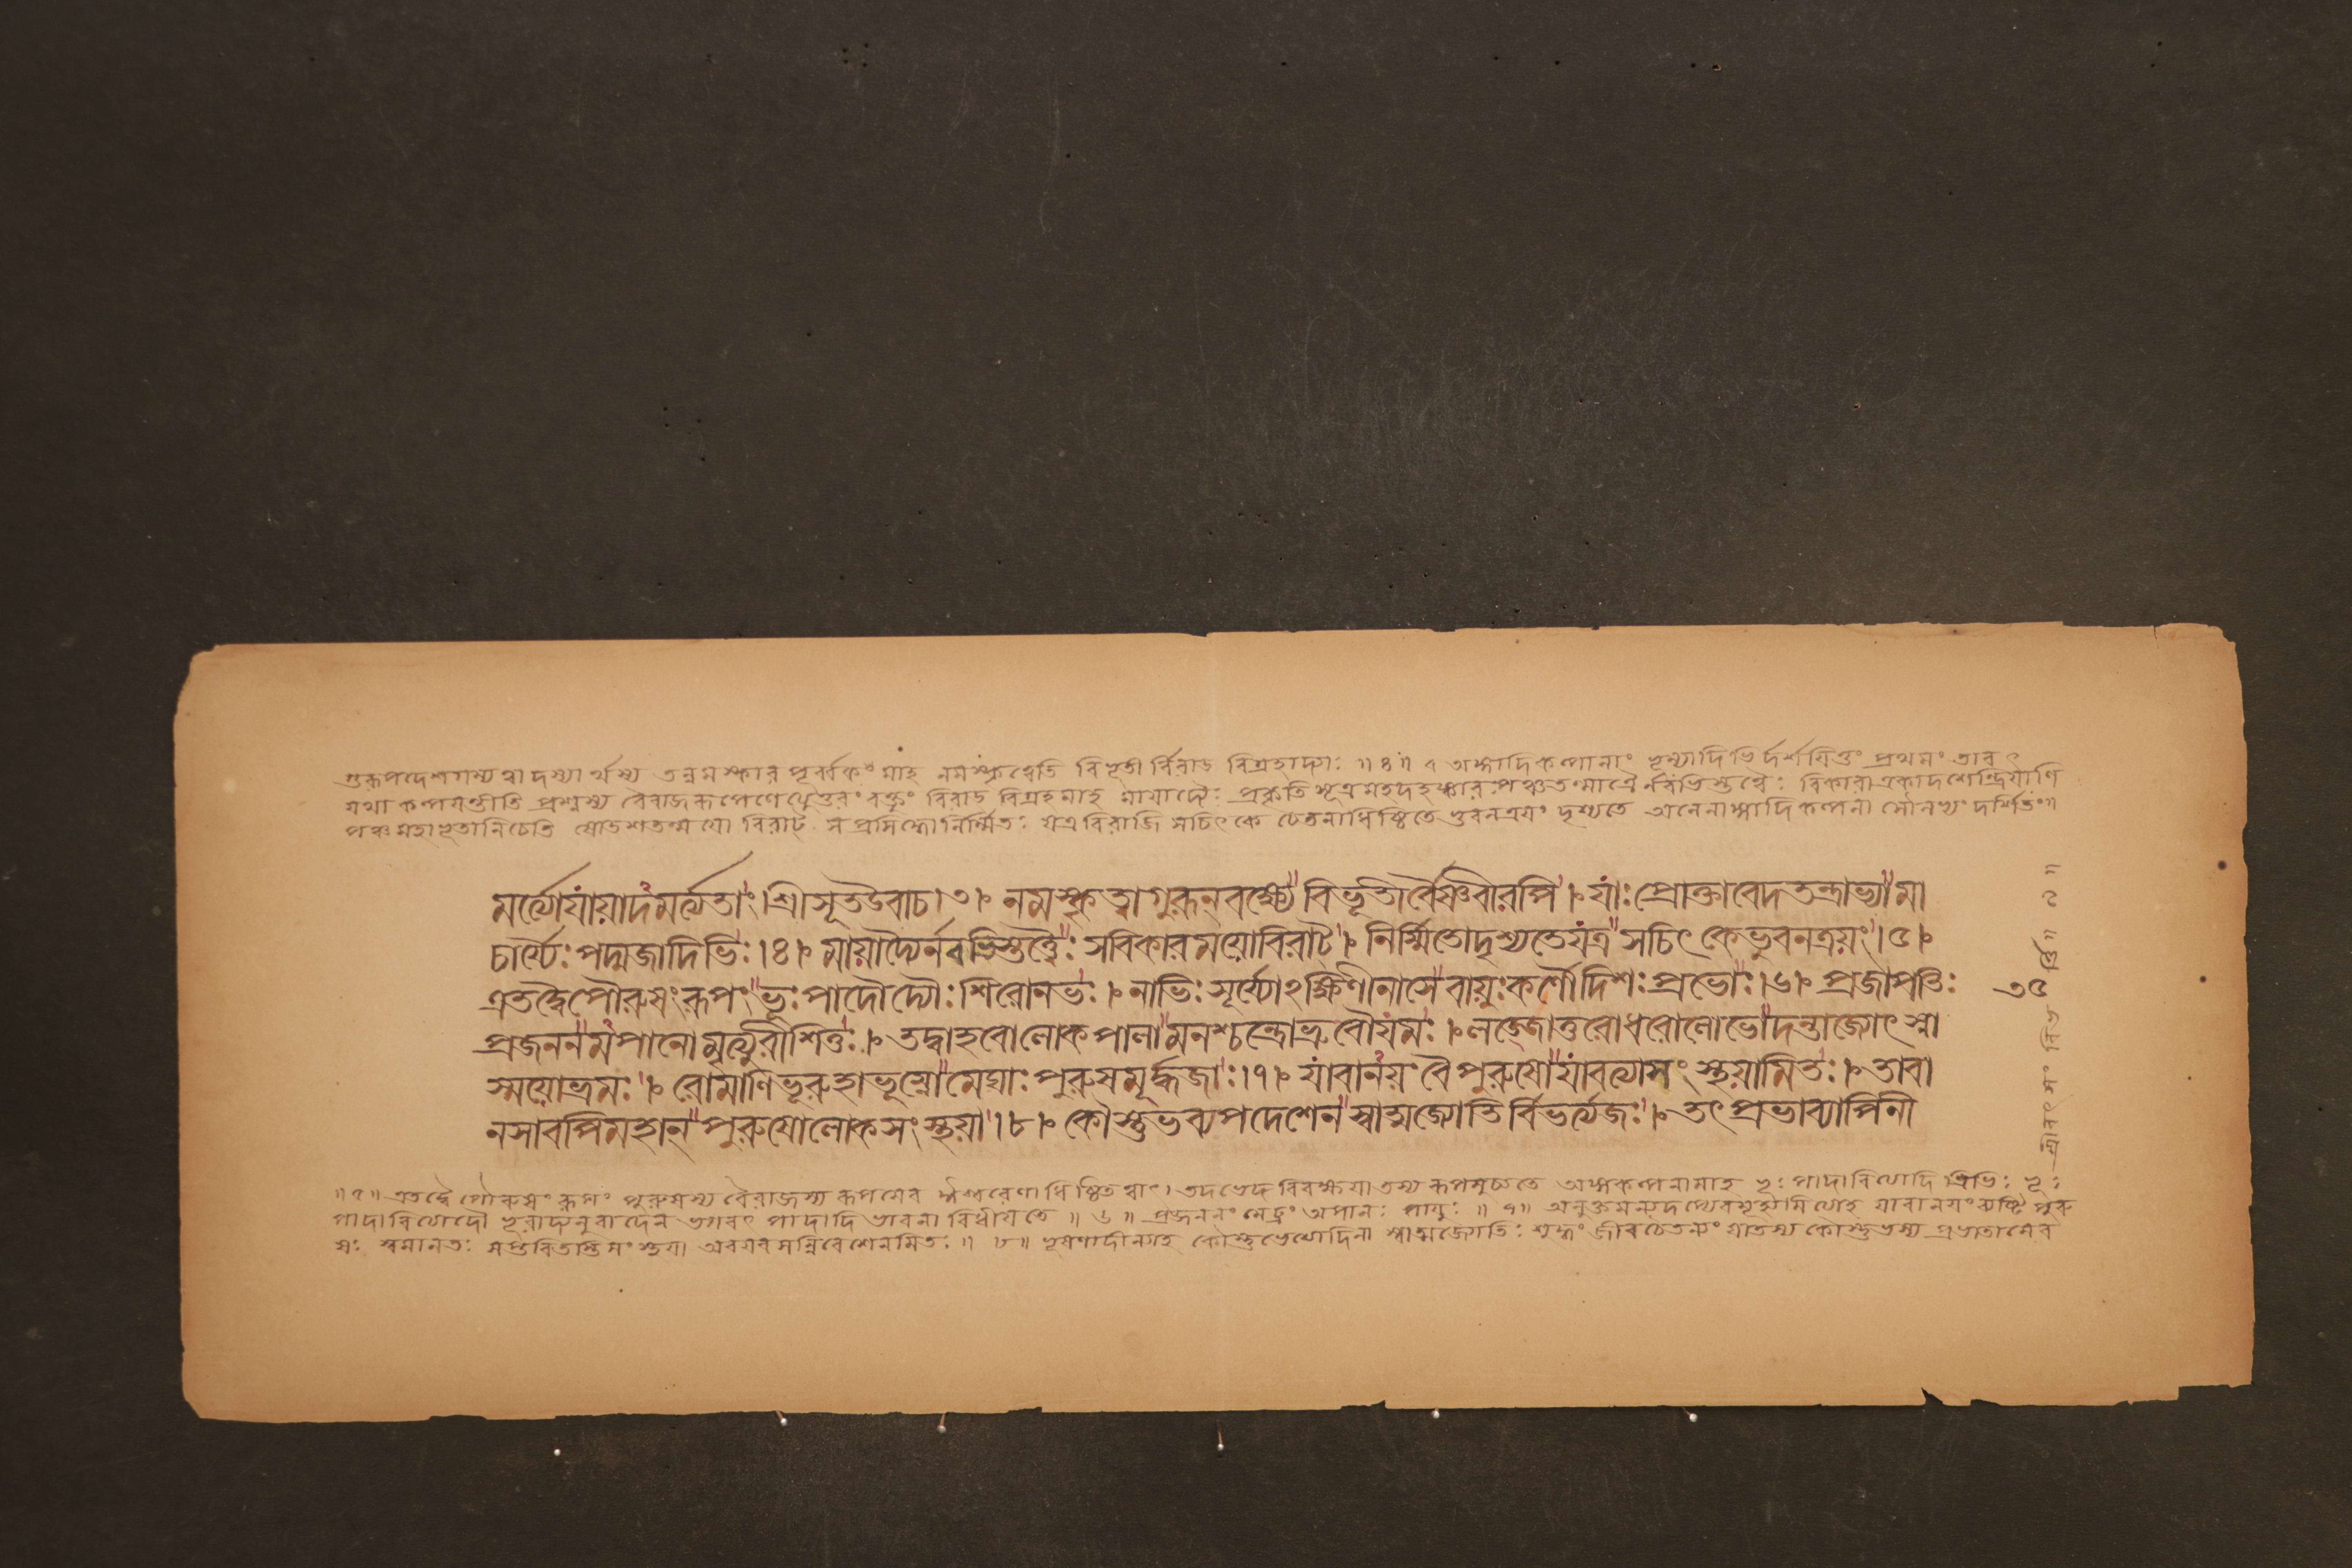 গুরূপদেশগম্যত্বাদস্যার্থস্য তন্নমস্কার পূর্ব্বকং মাহ নমস্কৃত্বেতি বিভূতী র্বিরাড বিগ্রহাদ্যাঃ ॥ ৪ ॥ অঙ্গাদিকল্পনাং ভূম্যাদিভির্দর্শয়িতুং প্রথমং তাবৎ
যথা কল্পয়ন্তীতি প্রশ্নস্য বৈরাজরূপেণে উত্তরং বক্তুং বিরাড বিগ্রহমাহ মায়াদ্যৈঃ প্রকৃতি সূত্র মহদহঙ্কার পঞ্চতন্মাত্রৈ র্নবভিস্তত্ত্বৈঃ বিকারা একাদশেন্দ্রিয়াণি
পঞ্চ মহাভূতানিচেতি ষোডশতন্ময়ো বিরাট্ স প্রসিদ্ধো নির্ম্মিতঃ যত্র বিরাজি সচিৎকে চেতনাধিষ্ঠিতে ভুবনত্রয়ং দৃশ্যতে অনেনাঙ্গাদি কল্পনা দর্শিতং॥
মর্ত্যোযাঁয়াদমর্ত্যতাং। শ্রীসূতউবাচ।৩। নমস্কৃত্বাগুরূন্ বক্ষ্যে বিভূতীর্বৈষ্ণবীরপি। যাঃ প্রোক্তাবেদতন্ত্রাভ্যামা
চার্য্যৈঃ পদ্মজাদিভিঃ।৪। মায়াদ্যৈর্নবভিস্তত্ত্বৈঃ সবিকারময়োবিরাট্। নির্ম্মিতোদৃশ্যতেযত্র সচিৎ কেভুবনত্রয়ং।৫।
এতদ্বৈপৌরুষংরূপং ভূঃ পাদৌদ্যৌঃ শিরোনভঃ। নাভিঃ সূর্য্যোঽক্ষিণীনাসে বায়ুঃ কর্ণৌদিশঃ প্রভোঃ।৬। প্রজাপতিঃ
প্রজননমপানো মৃত্যুরীশিতুঃ। তদ্বাহবোলোকপালা মনশ্চন্দ্রোভ্রুবৌযমঃ। লজ্জোত্তরোধরোলোভো দন্তাজ্যোৎস্না
স্ময়োভ্রমঃ। রোমাণিভূরুহাভূম্নো মেঘাঃ পুরুষমূর্দ্ধজাঃ।৭। যাবানয়ং বৈপুরুষো যাবত্যাসংস্থয়ামিতঃ। তাবা
নসাবপিমহান্ পুরুষোলোকসংস্থয়া।৮। কৌস্তুভব্যপদেশেন স্বাত্মজ্যোতির্বিভর্ত্যজঃ। তৎ প্রভাব্যাপিনী
॥ ৫ ॥ এতদ্বৈ পৌরুষং রূপং পুরুষস্য বৈরাজস্য রূপমেব ঈশ্বরেণাধিষ্ঠিতত্বাৎ। তদভেদ বিবক্ষয়া তস্য রূপমুচ্যতে অঙ্গকল্পনামাহ ভূঃ পাদাবিত্যাদি ত্রিভিঃ ভূঃ
পাদাবিত্যাদৌ ভূরাদ্যনুবাদেন ভগবৎ পাদাদি ভাবনা বিধীয়তে ॥ ৬ ॥ প্রজননং মেঢ্রং অপানঃ পায়ুঃ ॥ ৭ ॥ অনুক্তমন্যদপ্যেবমূহ্যমিত্যাহ যাবানয়ং ব্যষ্টি পুরু
ষঃ স্বমানতঃ সপ্তবিতস্তি সংস্থয়া অবয়ব সন্নিবেশেনমিতঃ ॥ ৮ ॥ ভূষণাদীন্যাহ কৌস্তুভেত্যাদিনা স্বাত্মজ্যোতিঃ শুদ্ধং জীবচৈতন্যং কৌস্তুভস্য প্রভা
৩৫